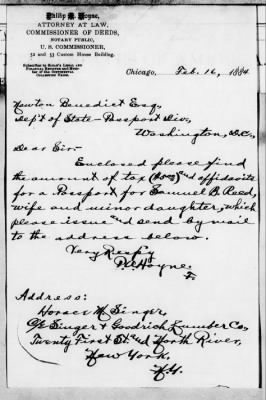 Philip A. Hoyne,
ATTORNEY AT LAW,
COMMISSIONER OF DEEDS,
NOTARY PUBLIC,
U. S. COMMISSIONER,
52 and 53 Custom House Building.
Chicago, Feb. 16, 1884
Newton Benedict Esq.
Dep't of State - Passport Div,
Washington, D.C.
Dear Sir-
Enclosed please find
the amount of tax and affidavits
for a Passport for Samuel B. Reed,
wife and minor daughter, which
please issue and send by mail
to the address below.
Very Resp'y
P. A. Hoyne.
Address:
Horace M Singer,
Singer & Goodrich Lumber Co,
Twenty First St. and North River,
New York.
N.Y.